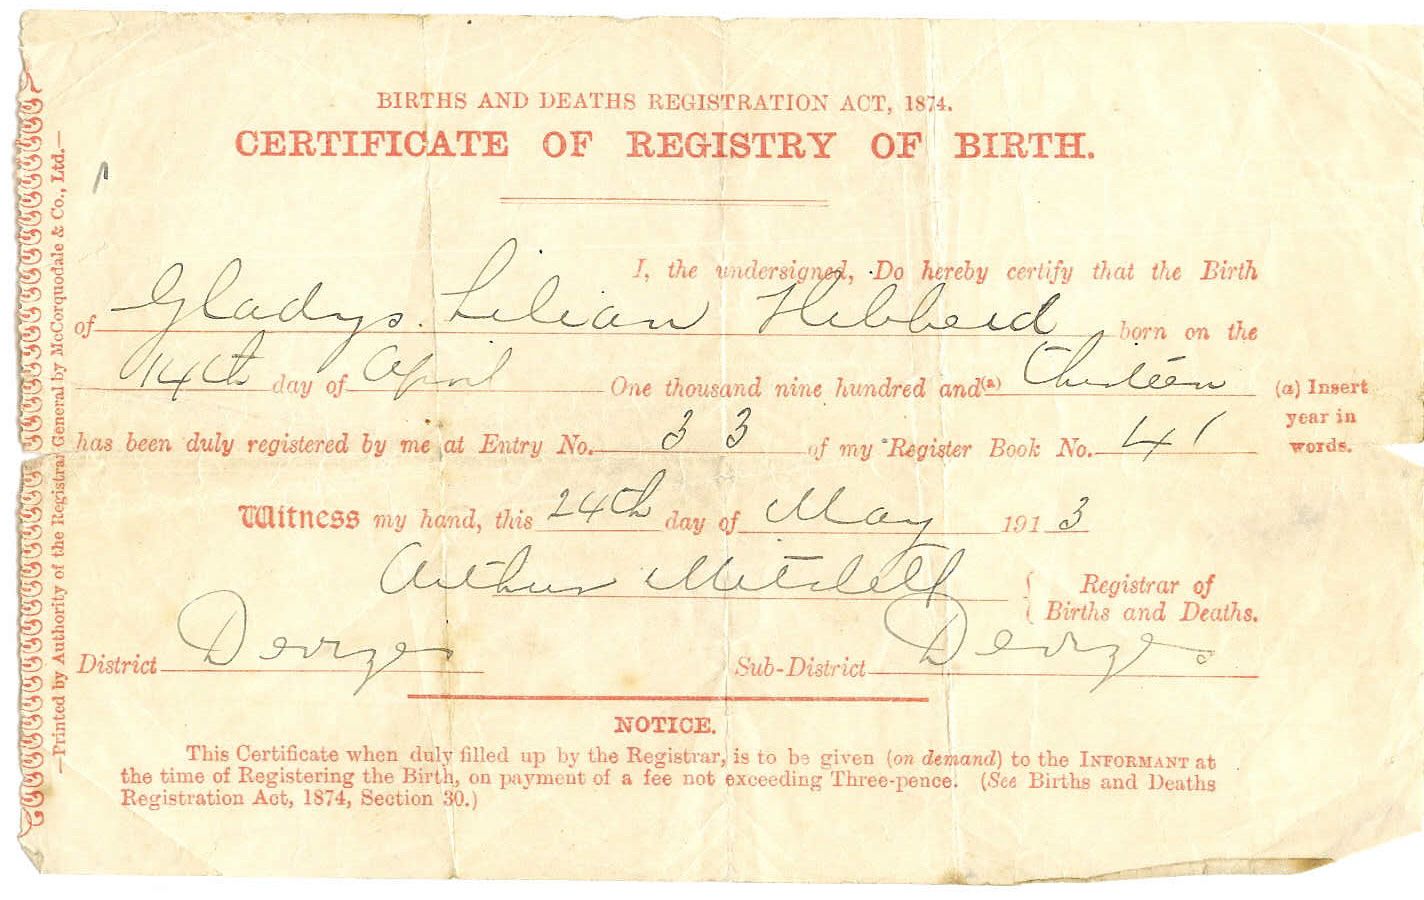 BIRTHS AND DEATHS REGISTRATION ACT, 1874.
CERTIFICATE OF REGISTRY OF BIRTH.
I, the undersigned, Do hereby certify that the Birth
of Gladys Lilian Hibberd born on the
14th day of April One thousand nine hundred and (a) Thirteen
(a) Insert year in words.
has been duly registered by me at Entry No. 33 of my Register Book No. 41
Witness my hand, this 24th day of May 1913
Arthur Mitchell { Registrar of
Births and Deaths.
District Devizes Sub-District Devizes
NOTICE.
This Certificate when duly filled up by the Registrar, is to be given (on demand) to the INFORMANT at
the time of Registering the Birth, on payment of a fee not exceeding Three-pence. (See Births and Deaths
Registration Act, 1874, Section 30.)
—Printed by Authority of the Registrar General by McCorquodale & Co., Ltd.—